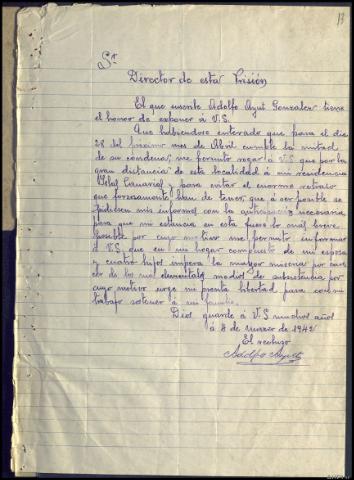 13
Sr
Director de esta Prisión
El que suscribe Adolfo Ayut Gonzalez tiene
el honor de exponer á V.S.
Que habiendose enterado que para el dia
28 del proximo mes de Abril cumple la mitad
de su condena; me permito rogar á V.S que por la
gran distancia de esta localidad á mi residencia
(Islas Canarias) y para evitar el enorme retraso
que forzosamente han de tener, que á ser posible se
pidiesen mis informes con la anticipacion necesaria
para que mi estancia en esta fuese lo mas breve
posible por cuyo motivo me permito informar
á V.S. que en mi hogar compuesto de mi esposa
y cuatro hijos impera la mayor miseria por care
cer de los mas elementales medios de subsistencia por
cuyo motivo urge mi pronta libertad para con mi
trabajo sostener á mi familia.
Dios guarde á V.S muchos años
á 8 de marzo de 1942
El recluso
Adolfo Ayut